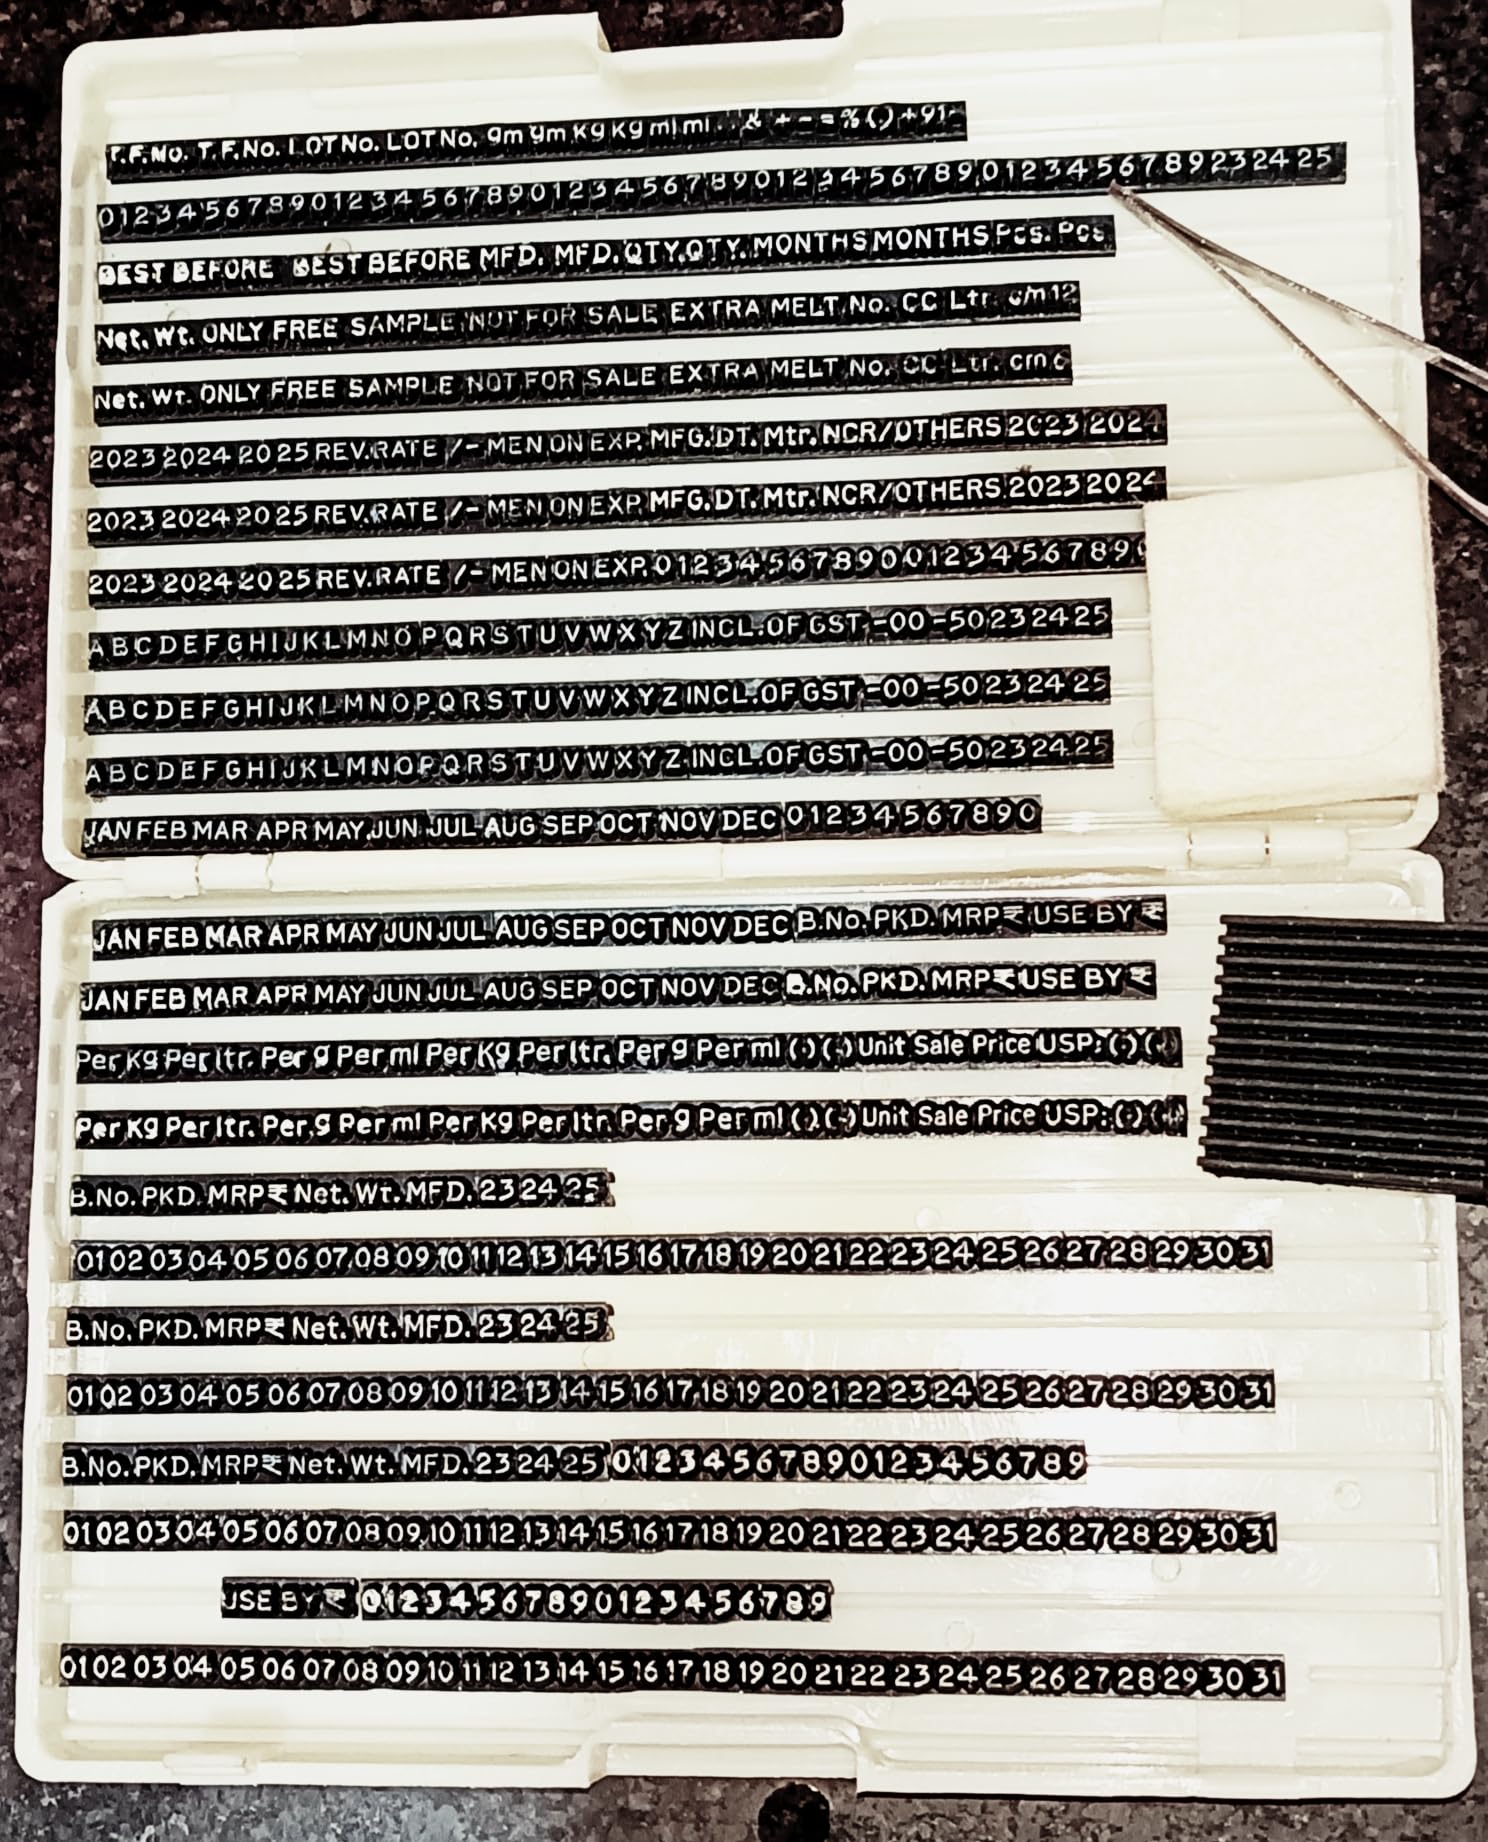 T.F.No. T.F.No. LOT No. LOT No. gm gm Kg Kg ml ml . . & + - = % (.) + 91-
0123456789012345678901234567890123456789232425
BEST BEFORE BEST BEFORE MFD. MFD. QTY. QTY. MONTHS MONTHS Pcs. Pcs
Net. Wt. ONLY FREE SAMPLE NOT FOR SALE EXTRA MELT No. CC Ltr. cm 12
Net. Wt. ONLY FREE SAMPLE NOT FOR SALE EXTRA MELT No. CC Ltr. cm 6
2023 2024 20 25 REV. RATE /- MEN ON EXP. MFG. DT. Mtr. NCR/OTHERS 2023 2024
2023 2024 20 25 REV. RATE /- MEN ON EXP. MFG. DT. Mtr. NCR/OTHERS 2023 2024
2023 2024 20 25 REV. RATE /- MEN ON EXP. 012345678900123456789
A B C D E F G H I J K L M N O P Q R S T U V W X Y Z INCL. OF GST -00 -50 23 24 25
A B C D E F G H I J K L M N O P Q R S T U V W X Y Z INCL. OF GST -00 -50 23 24 25
A B C D E F G H I J K L M N O P Q R S T U V W X Y Z INCL. OF GST -00 -50 23 24 25
JAN FEB MAR APR MAY JUN JUL AUG SEP OCT NOV DEC 01234567890
JAN FEB MAR APR MAY JUN JUL AUG SEP OCT NOV DEC B.No. PKD. MRP ₹ USE BY ₹
JAN FEB MAR APR MAY JUN JUL AUG SEP OCT NOV DEC B.No. PKD. MRP ₹ USE BY ₹
Per Kg Per ltr. Per g Per ml Per Kg Per ltr. Per g Per ml (.) (.) Unit Sale Price USP: (.) (.)
Per Kg Per ltr. Per g Per ml Per Kg Per ltr. Per g Per ml (.) (.) Unit Sale Price USP: (.) (.)
B.No. PKD. MRP ₹ Net. Wt. MFD. 23 24 25
01 02 03 04 05 06 07 08 09 10 11 12 13 14 15 16 17 18 19 20 21 22 23 24 25 26 27 28 29 30 31
B.No. PKD. MRP ₹ Net. Wt. MFD. 23 24 25
01 02 03 04 05 06 07 08 09 10 11 12 13 14 15 16 17 18 19 20 21 22 23 24 25 26 27 28 29 30 31
B.No. PKD. MRP ₹ Net. Wt. MFD. 23 24 25 01234567890123456789
01 02 03 04 05 06 07 08 09 10 11 12 13 14 15 16 17 18 19 20 21 22 23 24 25 26 27 28 29 30 31
USE BY ₹ 01234567890123456789
01 02 03 04 05 06 07 08 09 10 11 12 13 14 15 16 17 18 19 20 21 22 23 24 25 26 27 28 29 30 31